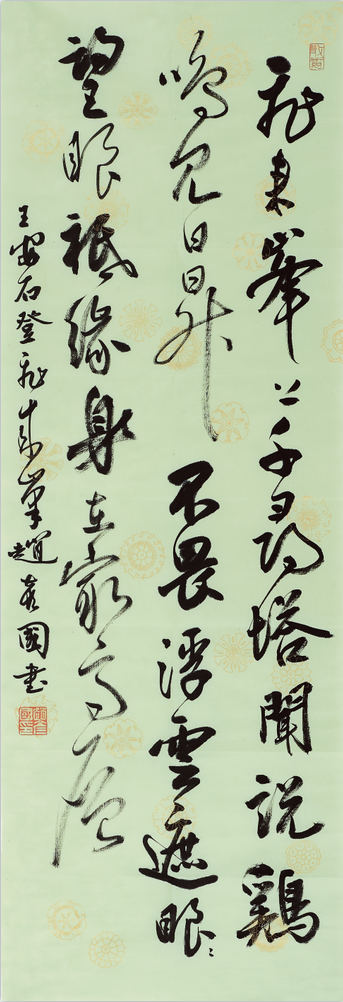 飛來峯上千尋塔聞說鷄
鳴見日昇不畏浮雲遮眼
望眼祇緣身在最高層
王安石登飛來峯趙國書